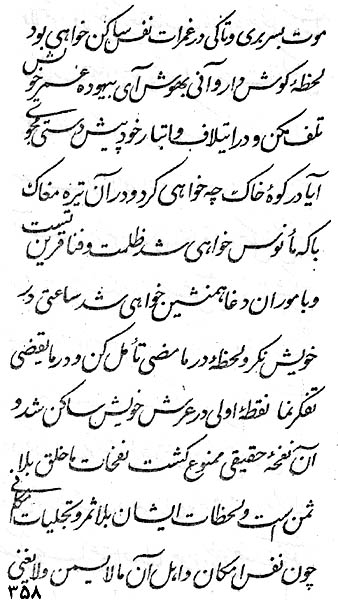 موت بسر بری و تا کی در غمرات نفس ساکن خواهی بود
لحظهٔ گوش دار و آنی بهوش آی بیهوده عمر خویش
تلف مکن و در ایتلاف و اتبار خود پیش دستی مجوی
آیا در کوهٔ خاک چه خواهی کرد و در آن تیره مغاک
با که مأنوس خواهی شد ظلمت و فنا قرین تست
و با موران دغا همنشین خواهی شد ساعتی در
خویش نگر و لحظهٔ در ما مضی تأمل کن و در ما یقضی
تفکر نما نقطهٔ اولی در عرش خویش ساکن شد و
آن نفخهٔ حقیقی ممنوع گشت نفحات ما خلق بلا
ثمن است و لحظات ایشان بلا ثمر و تجلیات کلی
چون نفس امکان و اهل آن ما لا یسمن و لا یغنی
۳۵۸